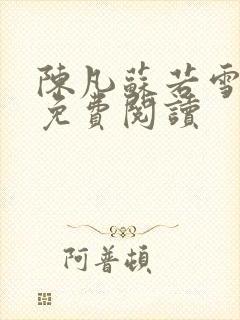 陳凡蘇若雪
免費閱讀
阿普頓